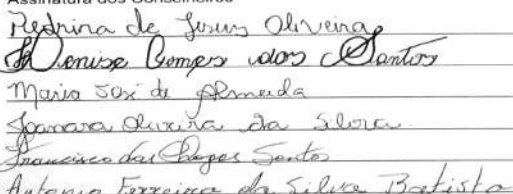 Assinatura dos Conselheiros
Pedrina de Jesus Oliveira
Denise Gomes dos Santos
Maria José de Almeida
Joamara Oliveira da Silva
Francisco das Chagas Santos
Antonio Ferreira da Silva Batista